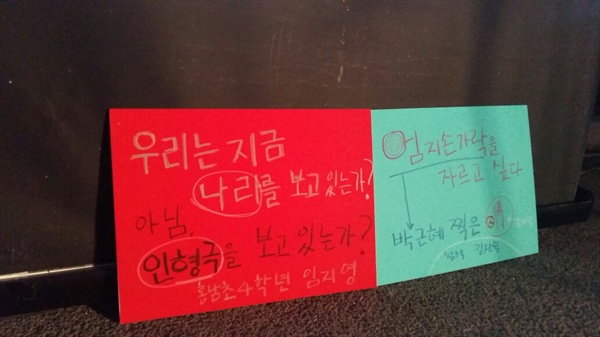 우리는 지금
나라를 보고 있는가?
아님,
인형극을 보고 있는가?
홍남초4학년 임지영
엄지손가락을
자르고 싶다
박근혜 찍은